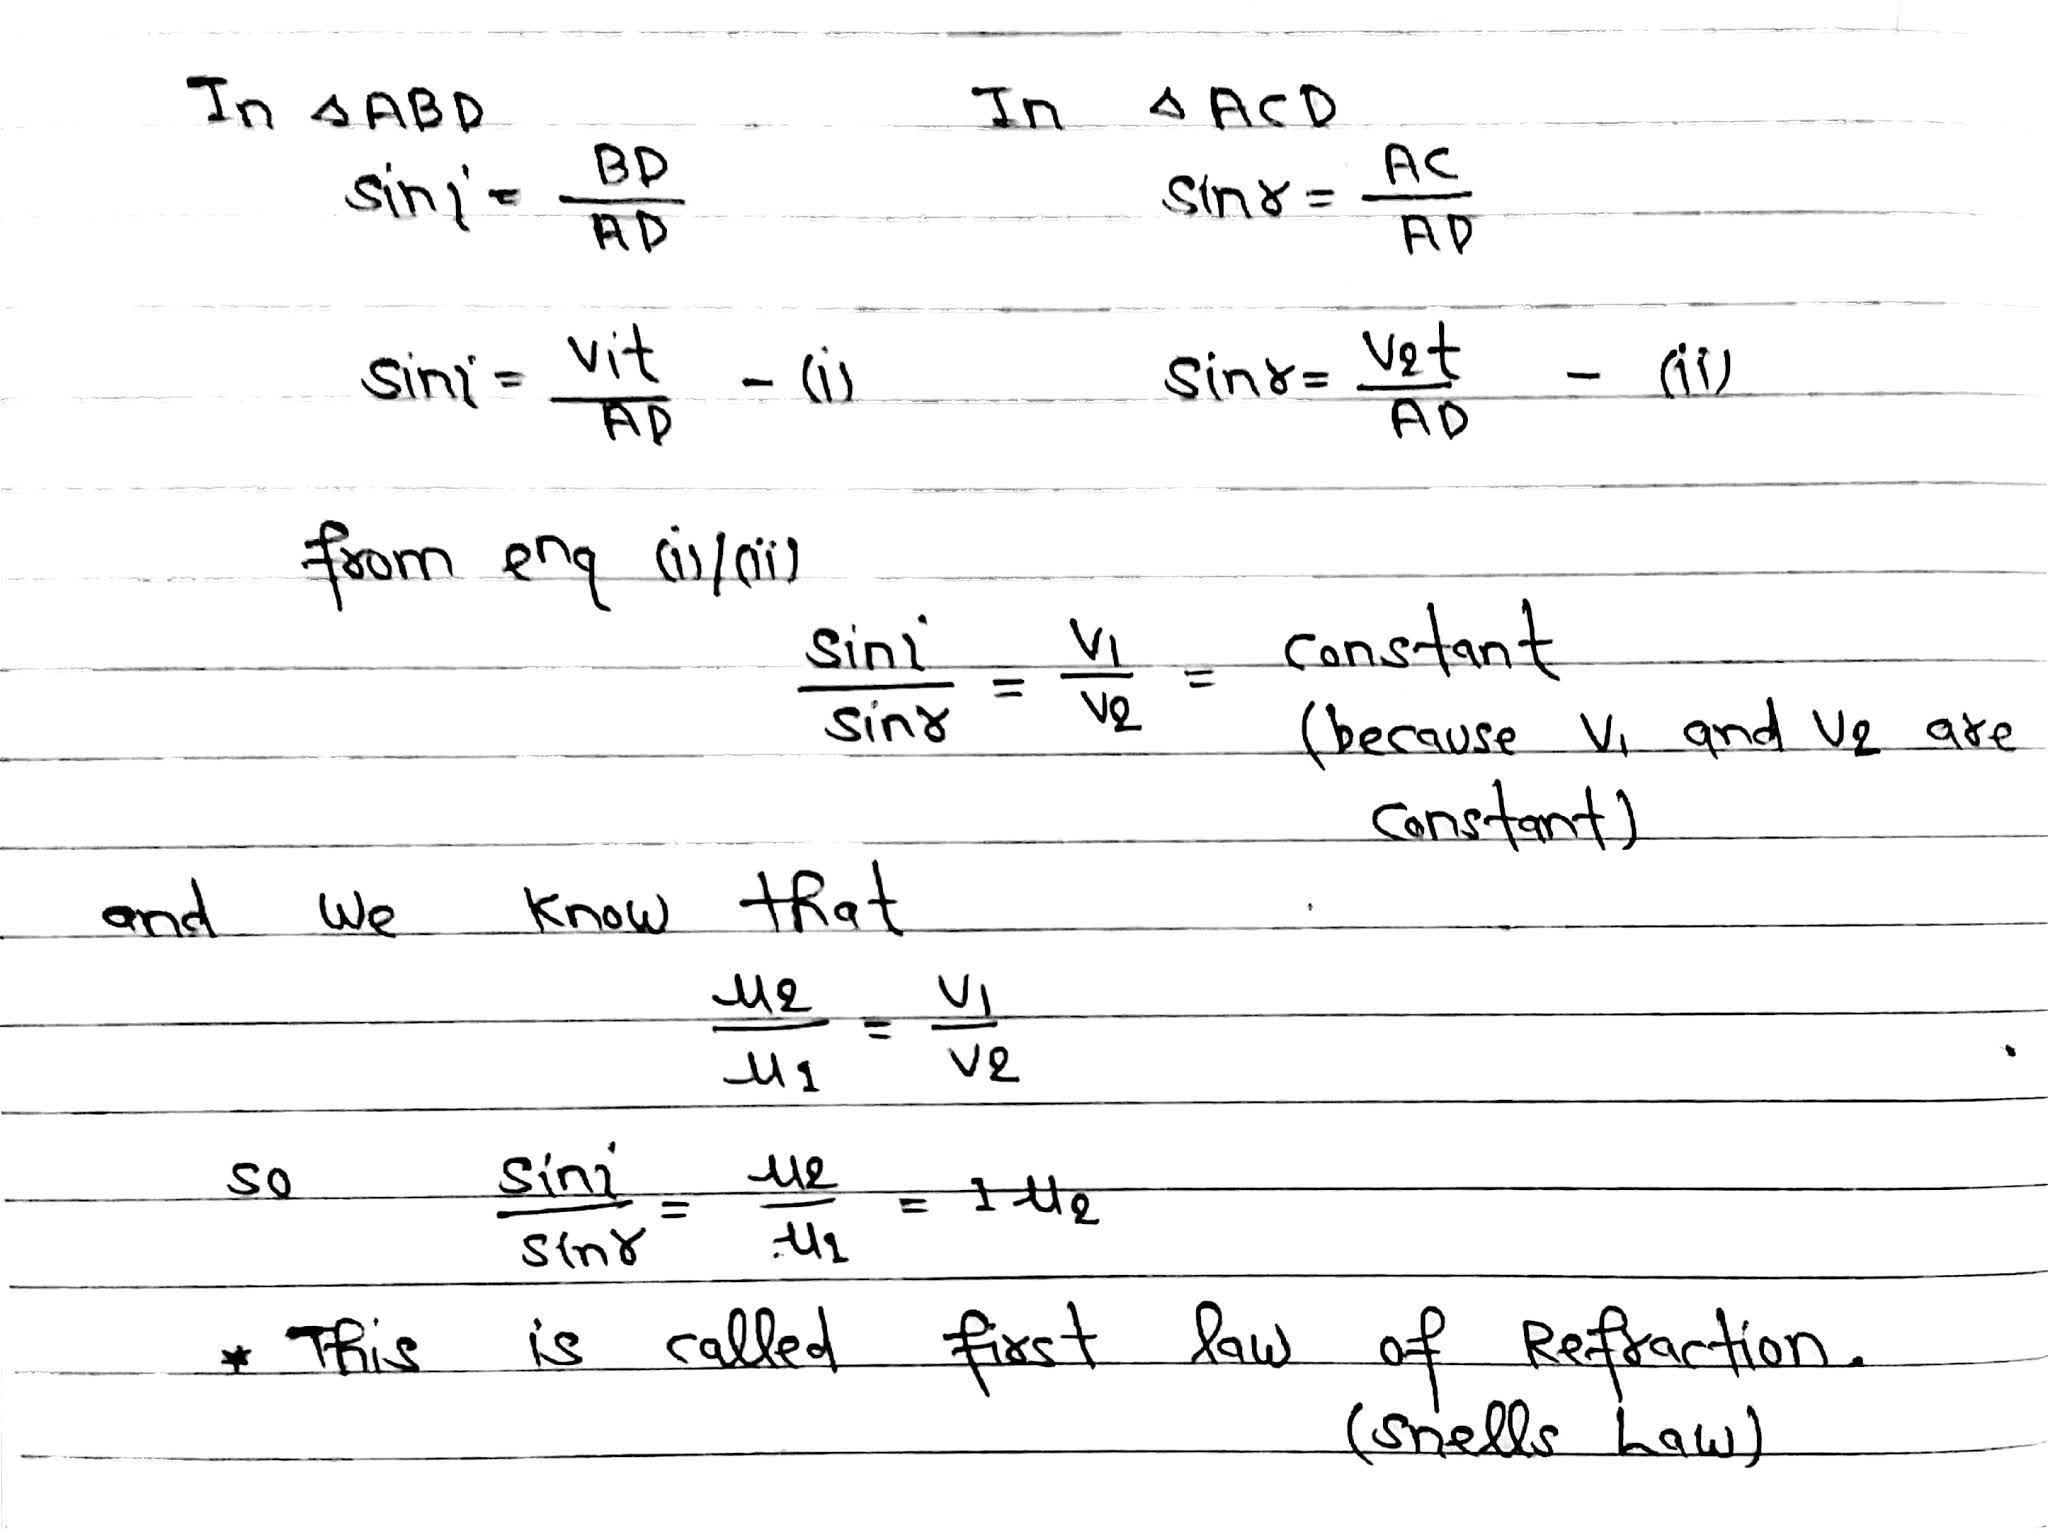 In △ABD In △ACD
sin i = BD/AD sin r = AC/AD
sin i = V1t/AD - (i) sin r = V2t/AD - (ii)
from enq (i)/(ii)
sin i/sin r = V1/V2 = constant
(because V1 and V2 are
constant)
and we know that
μ2/μ1 = V1/V2
so sin i/sin r = μ2/μ1 = 1μ2
* This is called first law of Refraction.
(snells Law)